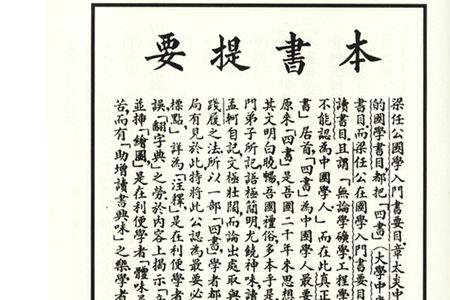 本書提要
梁任公國學入門書要目，章太炎中
的國學書目，都把「四書」（大學中
書目，而梁任公在國學入門書要目
讀書目，且謂「無論學礦學，工程學
不能認為中國學人」而在此真正
書」居首，「四書」為中國學人最要
原來「四書」是吾國二千年來思想
其文明白曉暢，吾國禮俗，多本乎是
門弟子所記，語極簡明，尤饒神味，讀
孟軻自記，文極壯闊，而論出處取與
踐履之法，所以一部「四書」，學者都
局有見於此，特將此公認為最要必
標點」，詳為「注釋」，是在利便學者
誤「翻字典」之勞，於內容上揭示「
並插「繪圖」，是在利便學者「體味
苦，而有「助增讀書興味」之樂，學者